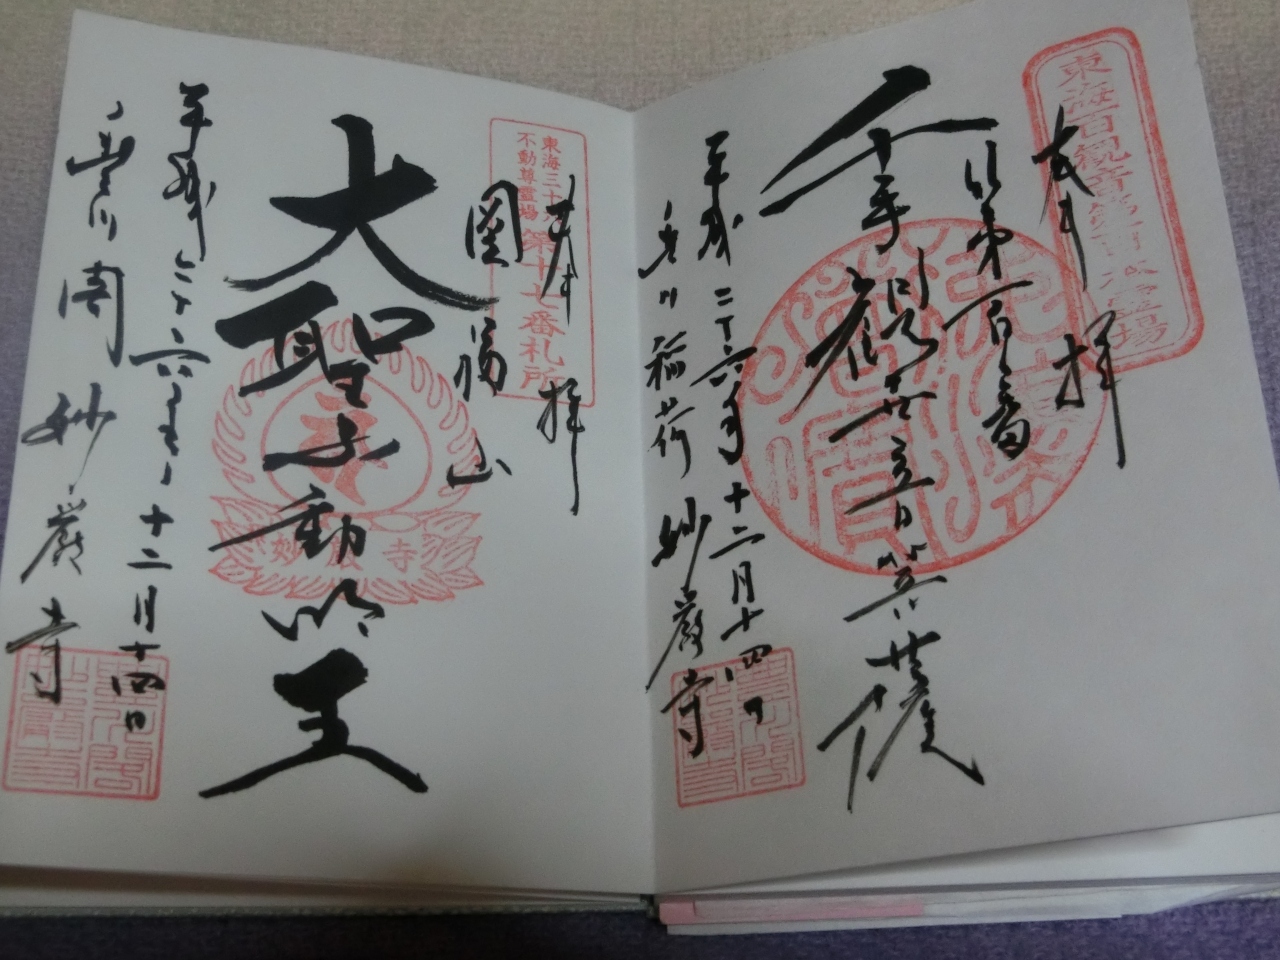 東海百観音第百番霊場
奉拝
第百番
千手観世音菩薩
平成二十六年十二月十四日
豊川稲荷妙厳寺
東海三十六
不動尊霊場
第十七番札所
奉拝
圓福山
大聖不動明王
妙厳寺
平成二十六年十二月十四日
豊川閣妙厳寺